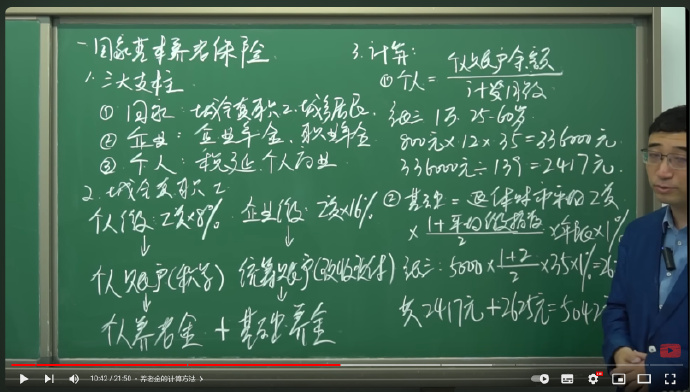 一国家基本养老保险
1.三大支柱
① 国家:城令企职工、城乡居民
② 企业:企业年金、职业年金
③ 个人:税延 个人商业
2.城企职工
个人缴:工资×8% 企业缴:工资×16%
↓ ↓
个人账户(积累) 统筹账户(现收现付)
↓ ↓
个人养老金 + 基础养老金
3.计算:
① 个人 = 个人账户余额
计发月数
张三 1万. 25-60岁
800元×12×35=336000元
336000元÷139=2417元.
② 基础 = 退休时 平均工资
× 1+平均缴费指数
2
×年限×1%
张三:5000×1+2
2
×35×1%=26
共2417元+2625元=5042
10:42 / 21:50 • 养老金的计算方法 >